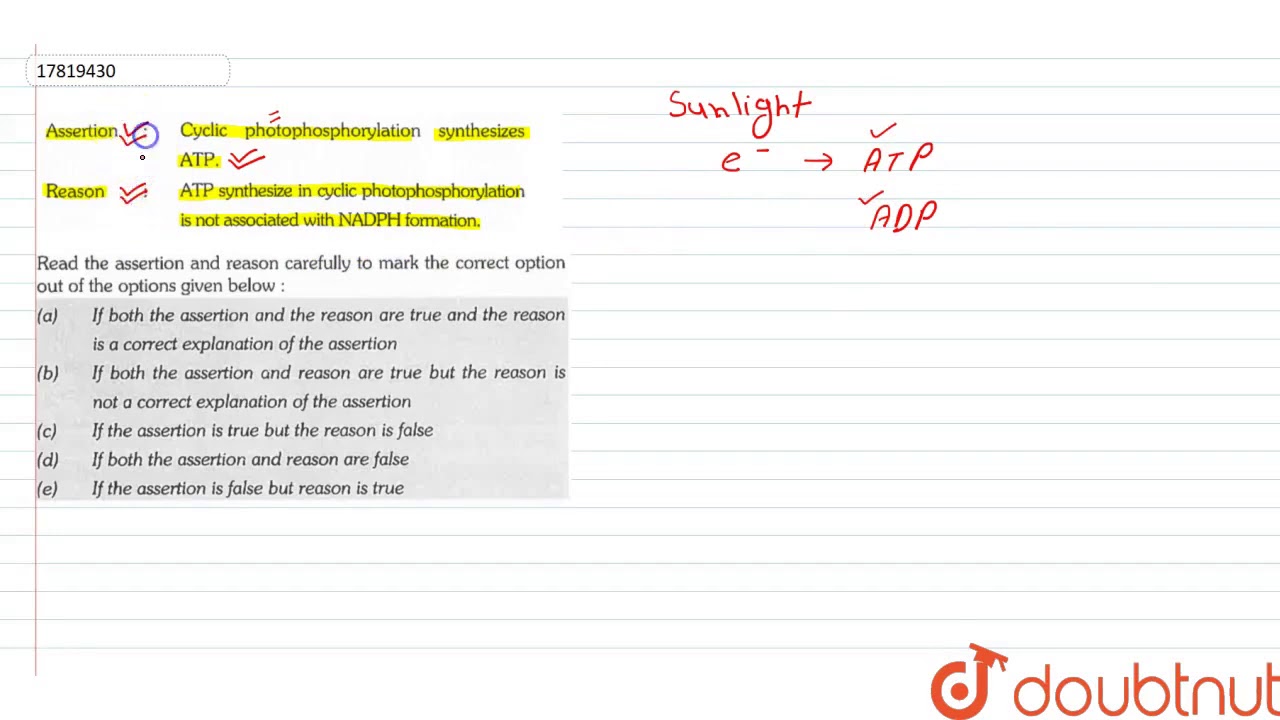 17819430
Assertion : Cyclic photophosphorylation synthesizes
ATP.
Reason : ATP synthesize in cyclic photophosphorylation
is not associated with NADPH formation.
Read the assertion and reason carefully to mark the correct option
out of the options given below :
(a) If both the assertion and the reason are true and the reason
is a correct explanation of the assertion
(b) If both the assertion and reason are true but the reason is
not a correct explanation of the assertion
(c) If the assertion is true but the reason is false
(d) If both the assertion and reason are false
(e) If the assertion is false but reason is true
Sunlight
e⁻ → ATP
ADP
doubtnut